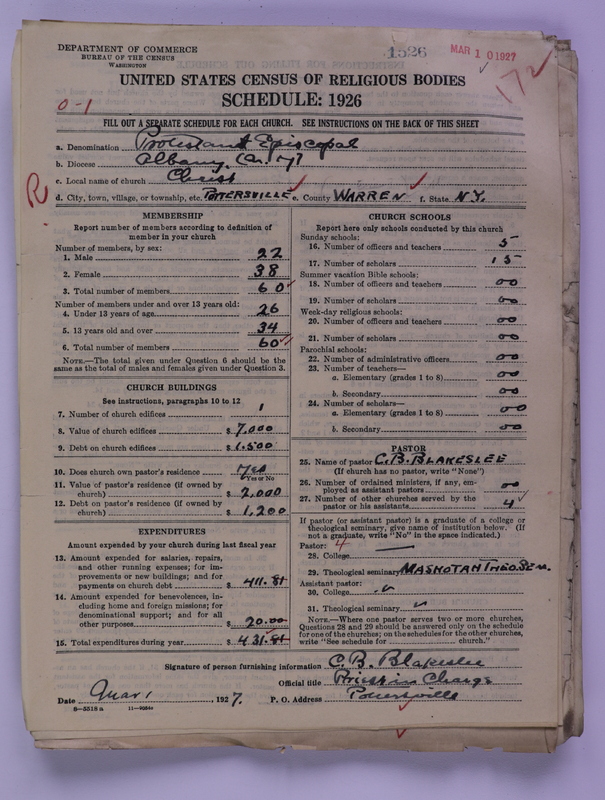 DEPARTMENT OF COMMERCE
BUREAU OF THE CENSUS
WASHINGTON
1526
MAR 10 1927
172
UNITED STATES CENSUS OF RELIGIOUS BODIES
SCHEDULE: 1926
0-1
FILL OUT A SEPARATE SCHEDULE FOR EACH CHURCH. SEE INSTRUCTIONS ON THE BACK OF THIS SHEET
a. Denomination Protestant Episcopal
b. Diocese Albany, (N.Y)
c. Local name of church Christ
d. City, town, village, or township, etc. POTTERSVILLE e. County WARREN f. State N.Y.
R
MEMBERSHIP
Report number of members according to definition of member in your church
Number of members, by sex:
1. Male 22
2. Female 38
3. Total number of members 60
Number of members under and over 13 years old:
4. Under 13 years of age 26
5. 13 years old and over 34
6. Total number of members 60
NOTE.—The total given under Question 6 should be the same as the total of males and females given under Question 3.
CHURCH BUILDINGS
See instructions, paragraphs 10 to 12
7. Number of church edifices 1
8. Value of church edifices $ 7,000
9. Debt on church edifices $ 1,500
10. Does church own pastor's residence Yes
Yes or No
11. Value of pastor's residence (if owned by church) $ 2,000
12. Debt on pastor's residence (if owned by church) $ 1,200
EXPENDITURES
Amount expended by your church during last fiscal year
13. Amount expended for salaries, repairs, and other running expenses; for improvements or new buildings; and for payments on church debt $ 411.81
14. Amount expended for benevolences, including home and foreign missions; for denominational support; and for all other purposes $ 20.00
15. Total expenditures during year $ 431.81
CHURCH SCHOOLS
Report here only schools conducted by this church
Sunday schools:
16. Number of officers and teachers 5
17. Number of scholars 15
Summer vacation Bible schools:
18. Number of officers and teachers 00
19. Number of scholars 00
Week-day religious schools:
20. Number of officers and teachers 00
21. Number of scholars 00
Parochial schools:
22. Number of administrative officers 00
23. Number of teachers—
a. Elementary (grades 1 to 8) 00
b. Secondary 00
24. Number of scholars—
a. Elementary (grades 1 to 8) 00
b. Secondary 00
PASTOR
25. Name of pastor C.B. BLAKESLEE
(If church has no pastor, write "None")
26. Number of ordained ministers, if any, employed as assistant pastors 00
27. Number of other churches served by the pastor or his assistants 4
If pastor (or assistant pastor) is a graduate of a college or theological seminary, give name of institution below. (If not a graduate, write "No" in the space indicated.)
Pastor: 4
28. College
29. Theological seminary MASHOTAH THEO. SEM.
Assistant pastor:
30. College
31. Theological seminary
NOTE.—Where one pastor serves two or more churches, Questions 28 and 29 should be answered only on the schedule for one of the churches; on the schedules for the other churches, write "See schedule for church."
Signature of person furnishing information C. B. Blakeslee
Official title Priest in Charge
Date Mar 1, 1927. P. O. Address Pottersville
8—5318 a